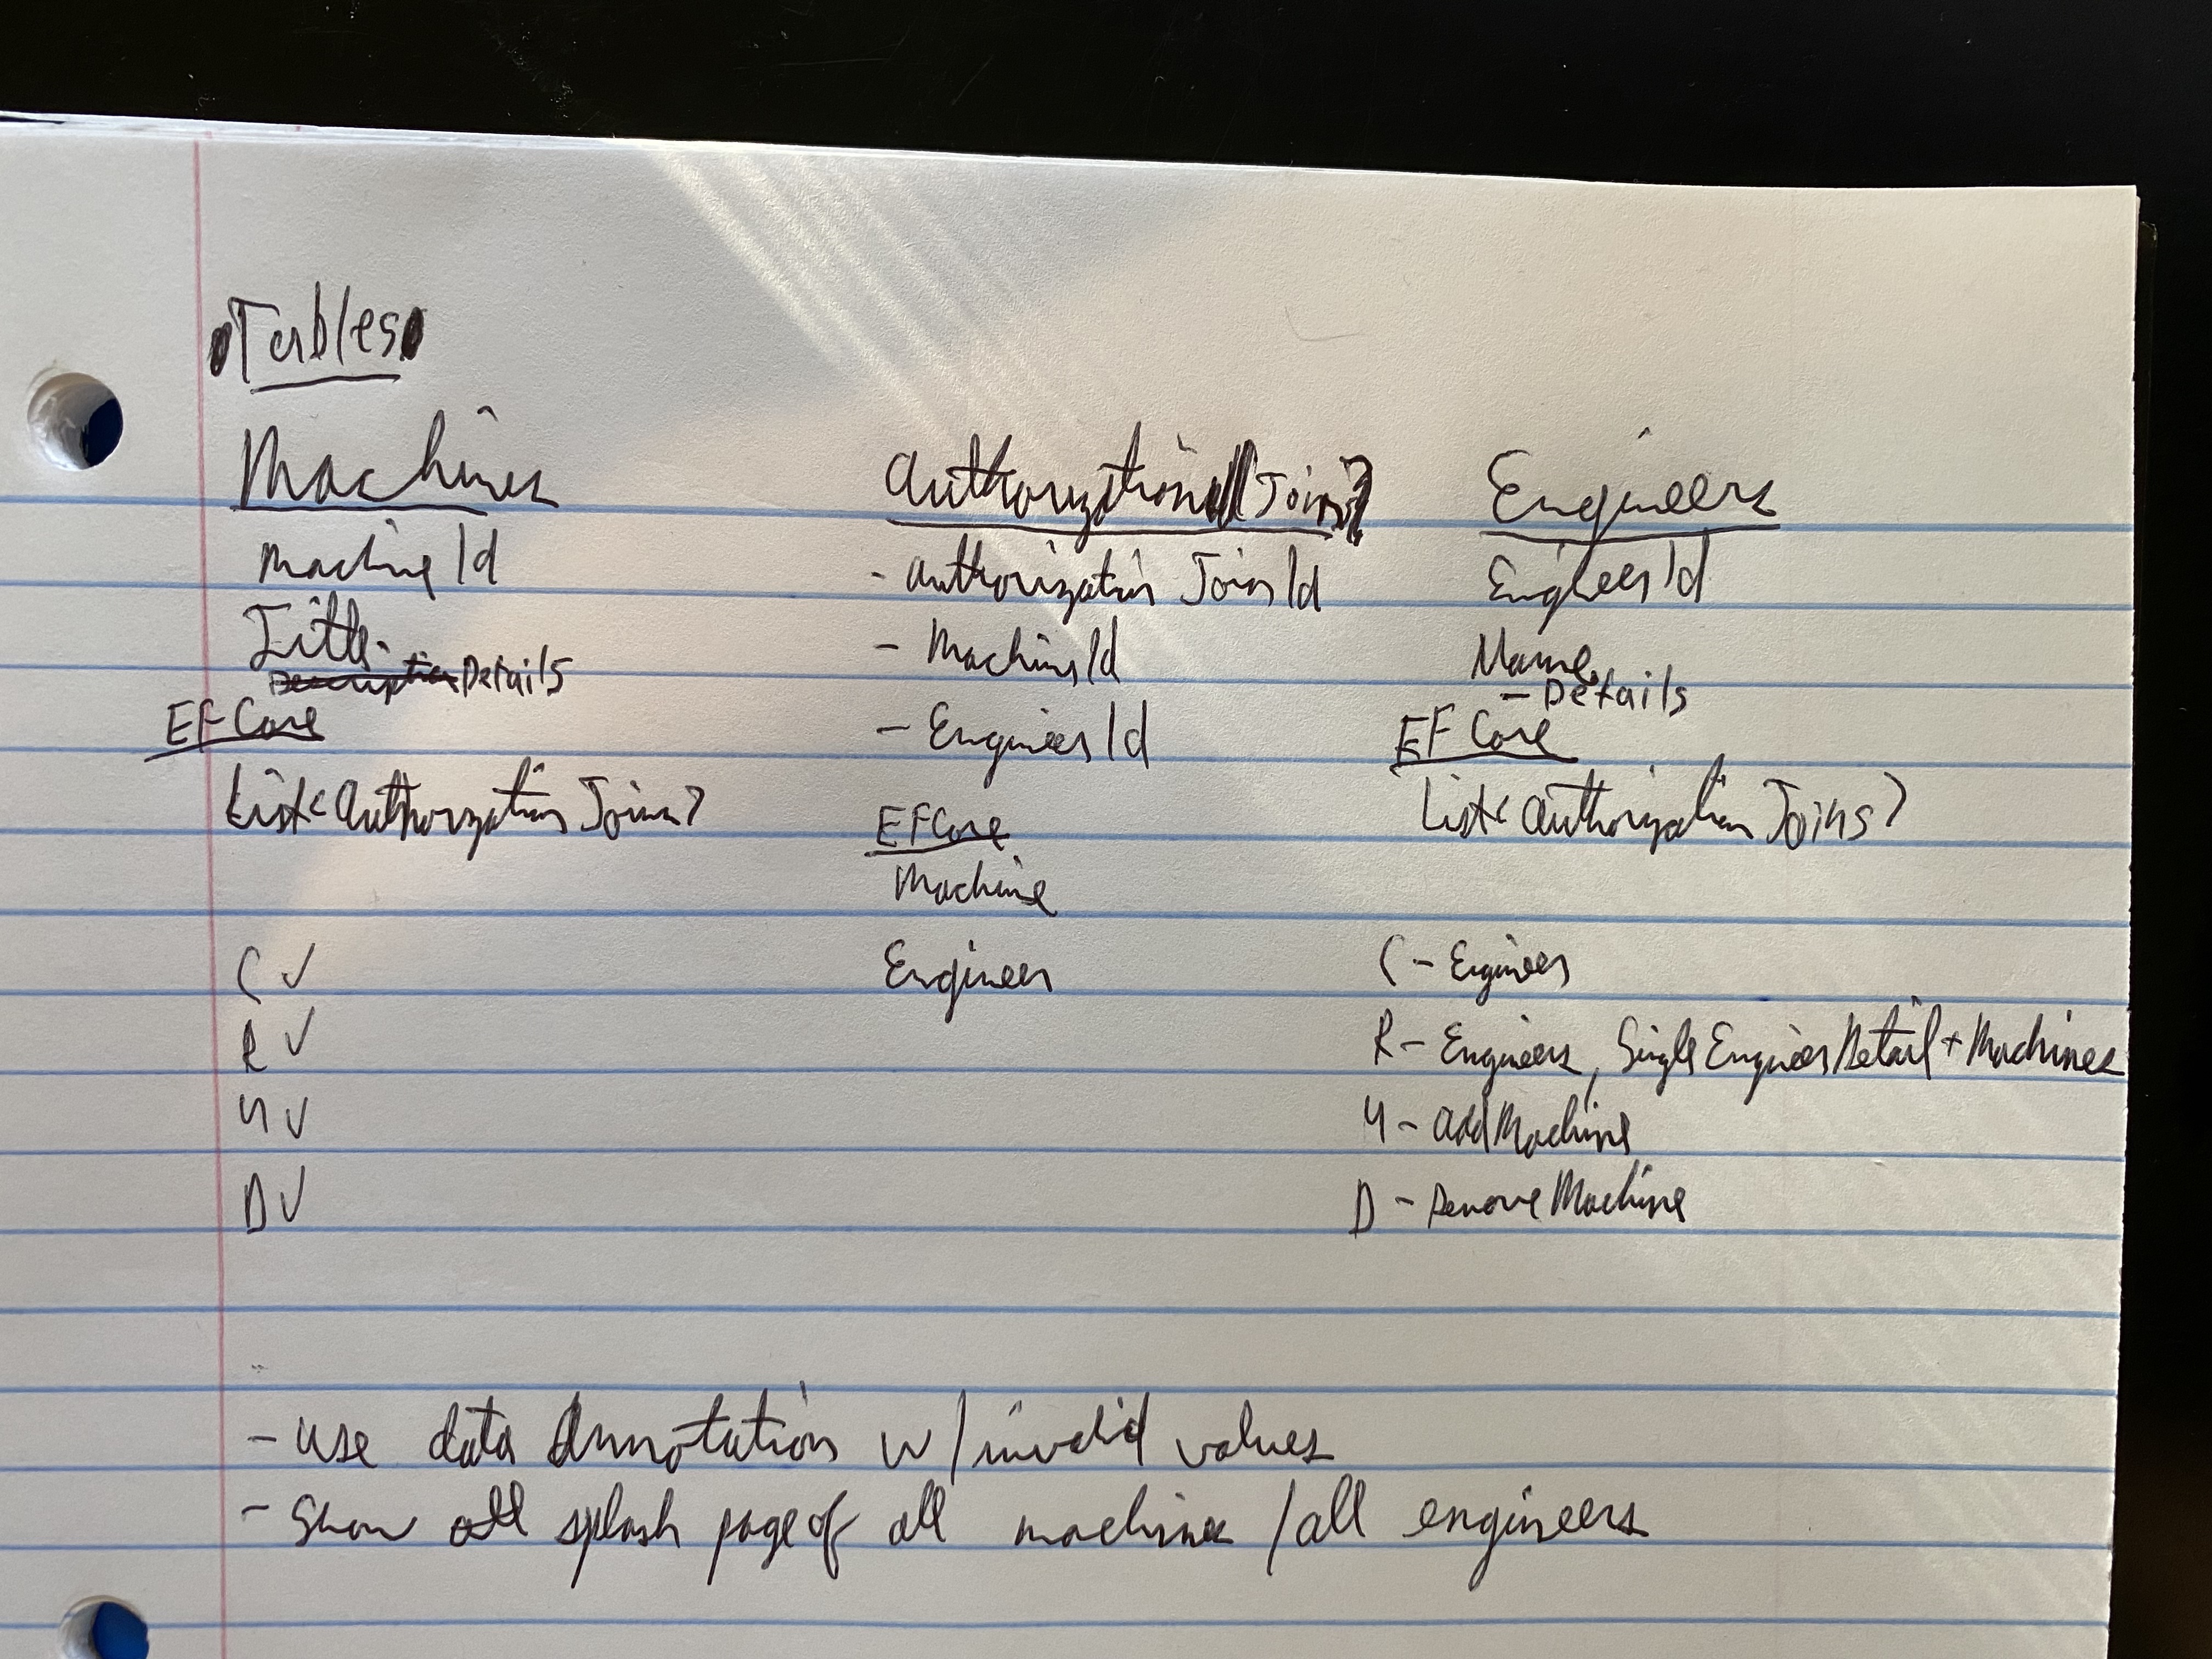 Tables
Machines
MachineId
Title
Details
EF Core
List<AuthorizationJoins>
C ✓
R ✓
U ✓
D ✓
Authorization Joins
- AuthorizationJoinId
- MachineId
- EngineerId
EF Core
Machine
Engineer
Engineers
EngineerId
Name
- Details
EF Core
List<AuthorizationJoins>
C - Engineer
R - Engineers, Single Engineer Detail + Machines
U - Add Machine
D - Remove Machine
- use data Annotation w/ invalid values
- Show splash page of all machines / all engineers